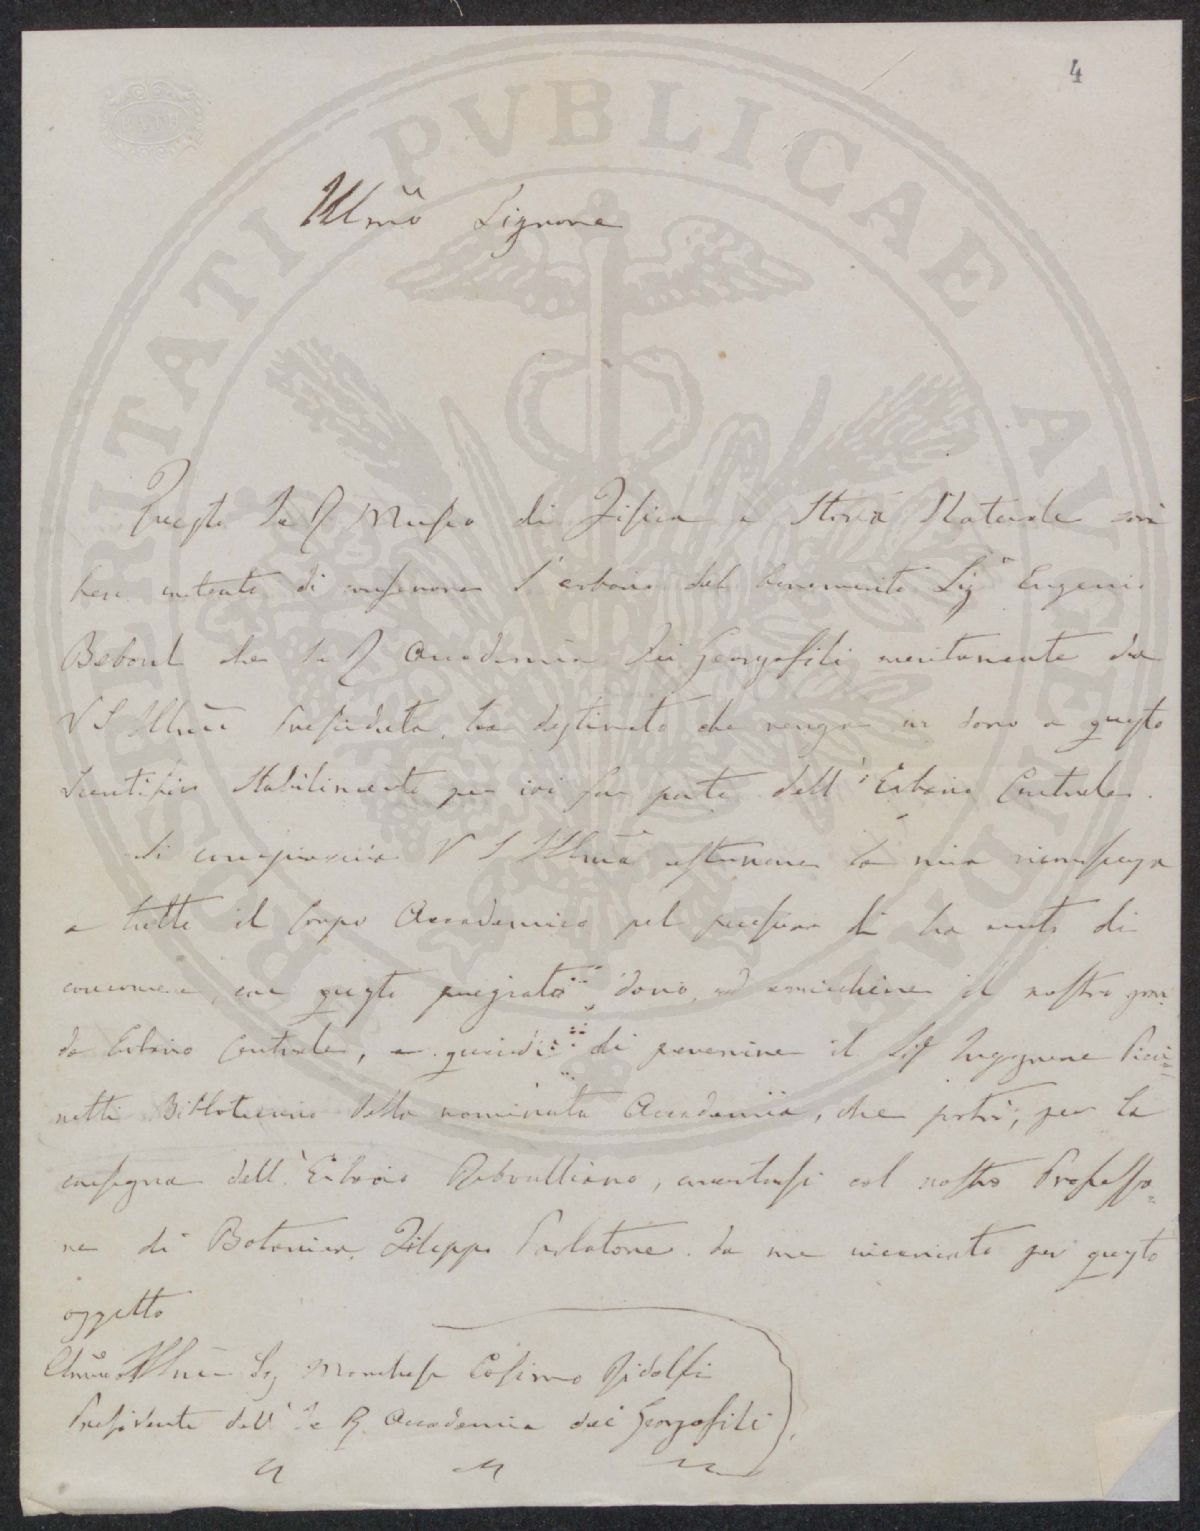 4
Illmo Signore
Questo I e R Museo di Fisica e Storia Naturale sarà
ben contento di conservare l'erbario del benemerito Sigr Eugenio
Reboul che la R Accademia dei Georgofili meritamente da
V S Illma Presieduta, ha destinato che venga in dono a questo
Scientifico Stabilimento per ivi far parte dell'Erbario Centrale.
Si compiaccia V S Illma esternare la mia riconoscenza
a tutto il Corpo Accademico pel pensiero di
con questo pregiato dono, ad arricchire il nostro gran
Erbario Centrale, e quindi di prevenire il Sig Ingegnere Pici=
netti Bibliotecario della nominata Accademia, che potrà, per la
consegna dell'Erbario Reboulliano, col nostro Professo=
re di Botanica Filippo Parlatore da me incaricato per questo
oggetto
Illmo Sig Marchese Cosimo Ridolfi
Presidente dell'I e R Accademia dei Georgofili
PROSPERITATI PVBLICAE AVGENDAE